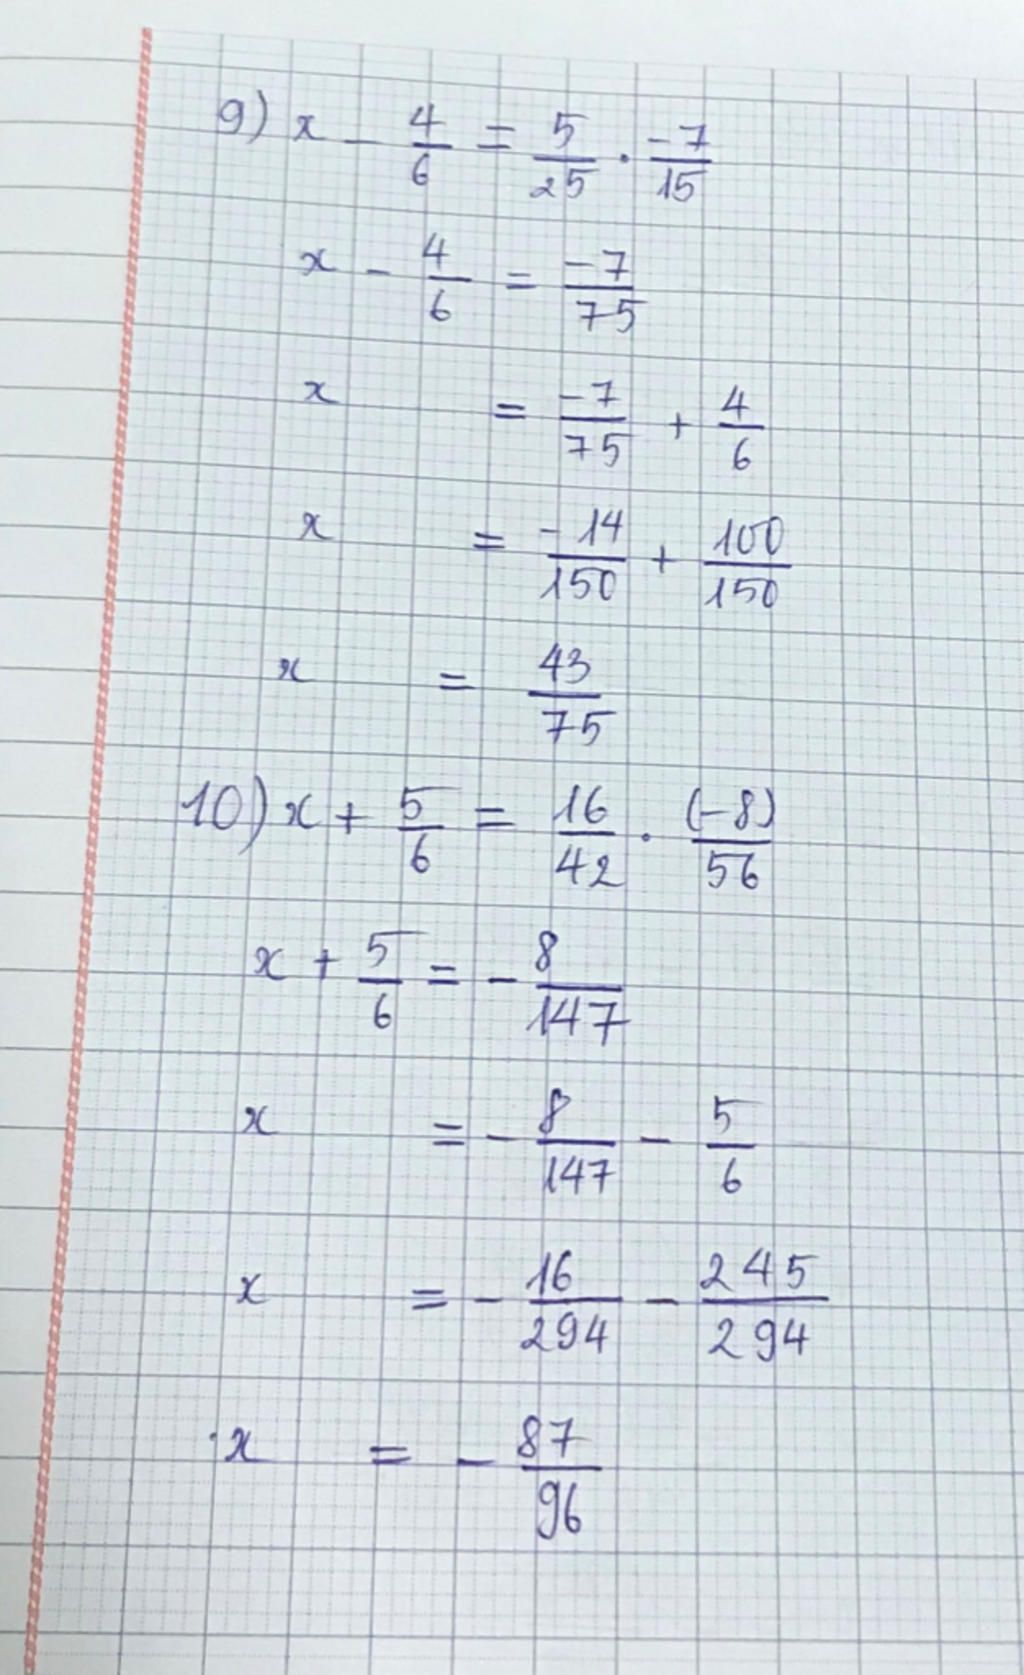 9) x - 4/6 = 5/25 . -7/15
x - 4/6 = -7/75
x = -7/75 + 4/6
x = -14/150 + 100/150
x = 43/75
10) x + 5/6 = 16/42 . (-8)/56
x + 5/6 = - 8/147
x = - 8/147 - 5/6
x = - 16/294 - 245/294
x = - 87/96